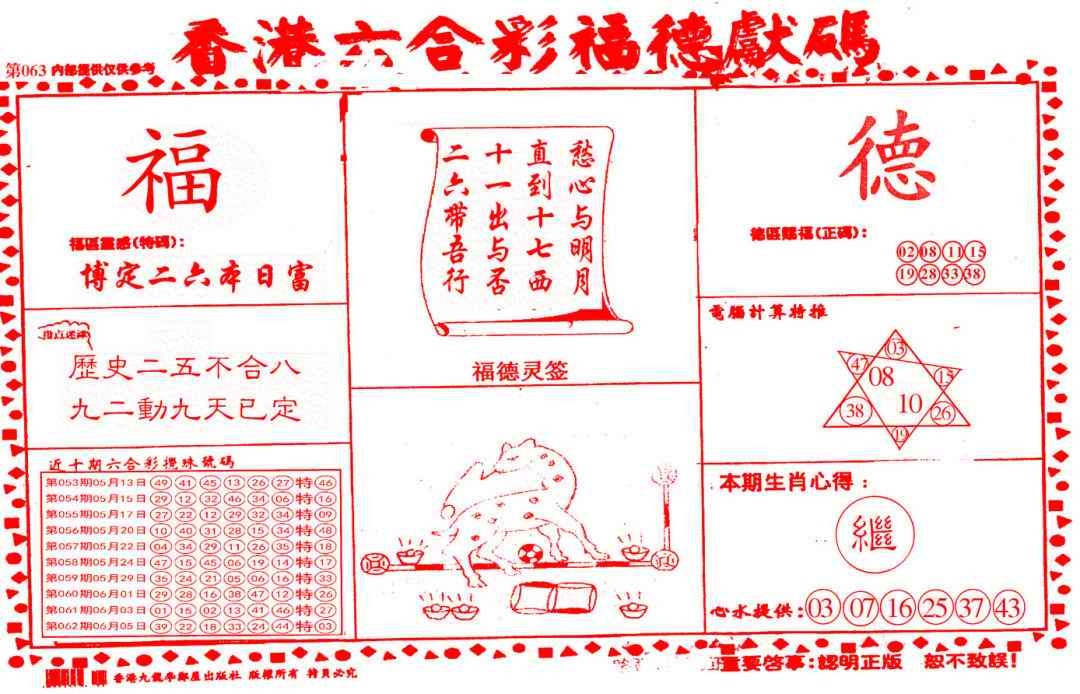 香港六合彩福德獻碼
第063 内部提供仅供参考
福
福區靈感(特碼):
博定二六本日富
指点迷津
歷史二五不合八
九二動九天已定
近十期六合彩攪珠號碼
第053期05月13日 49 41 45 13 26 27 特 46
第054期05月15日 29 12 32 46 34 06 特 16
第055期05月17日 27 22 12 29 32 34 特 09
第056期05月20日 10 40 31 28 15 34 特 48
第057期05月22日 04 34 29 11 26 35 特 18
第058期05月24日 47 15 45 06 19 14 特 17
第059期05月29日 35 24 21 05 06 16 特 33
第060期06月01日 29 28 16 38 47 12 特 26
第061期06月03日 01 15 02 13 41 46 特 27
第062期06月05日 39 22 18 33 24 44 特 03
愁心与明月
直到十七西
十一出与否
二六帶吾行
福德灵签
德
德區賜福(正碼):
02 08 11 15
19 28 33 38
電腦計算特推
03
47 08 15
38 10 26
19
本期生肖心得:
繼
心水提供: 03 07 16 25 37 43
香港九龍學鄰屋出版社 版權所有 拷貝必究
重要啓事:認明正版 恕不致誤!